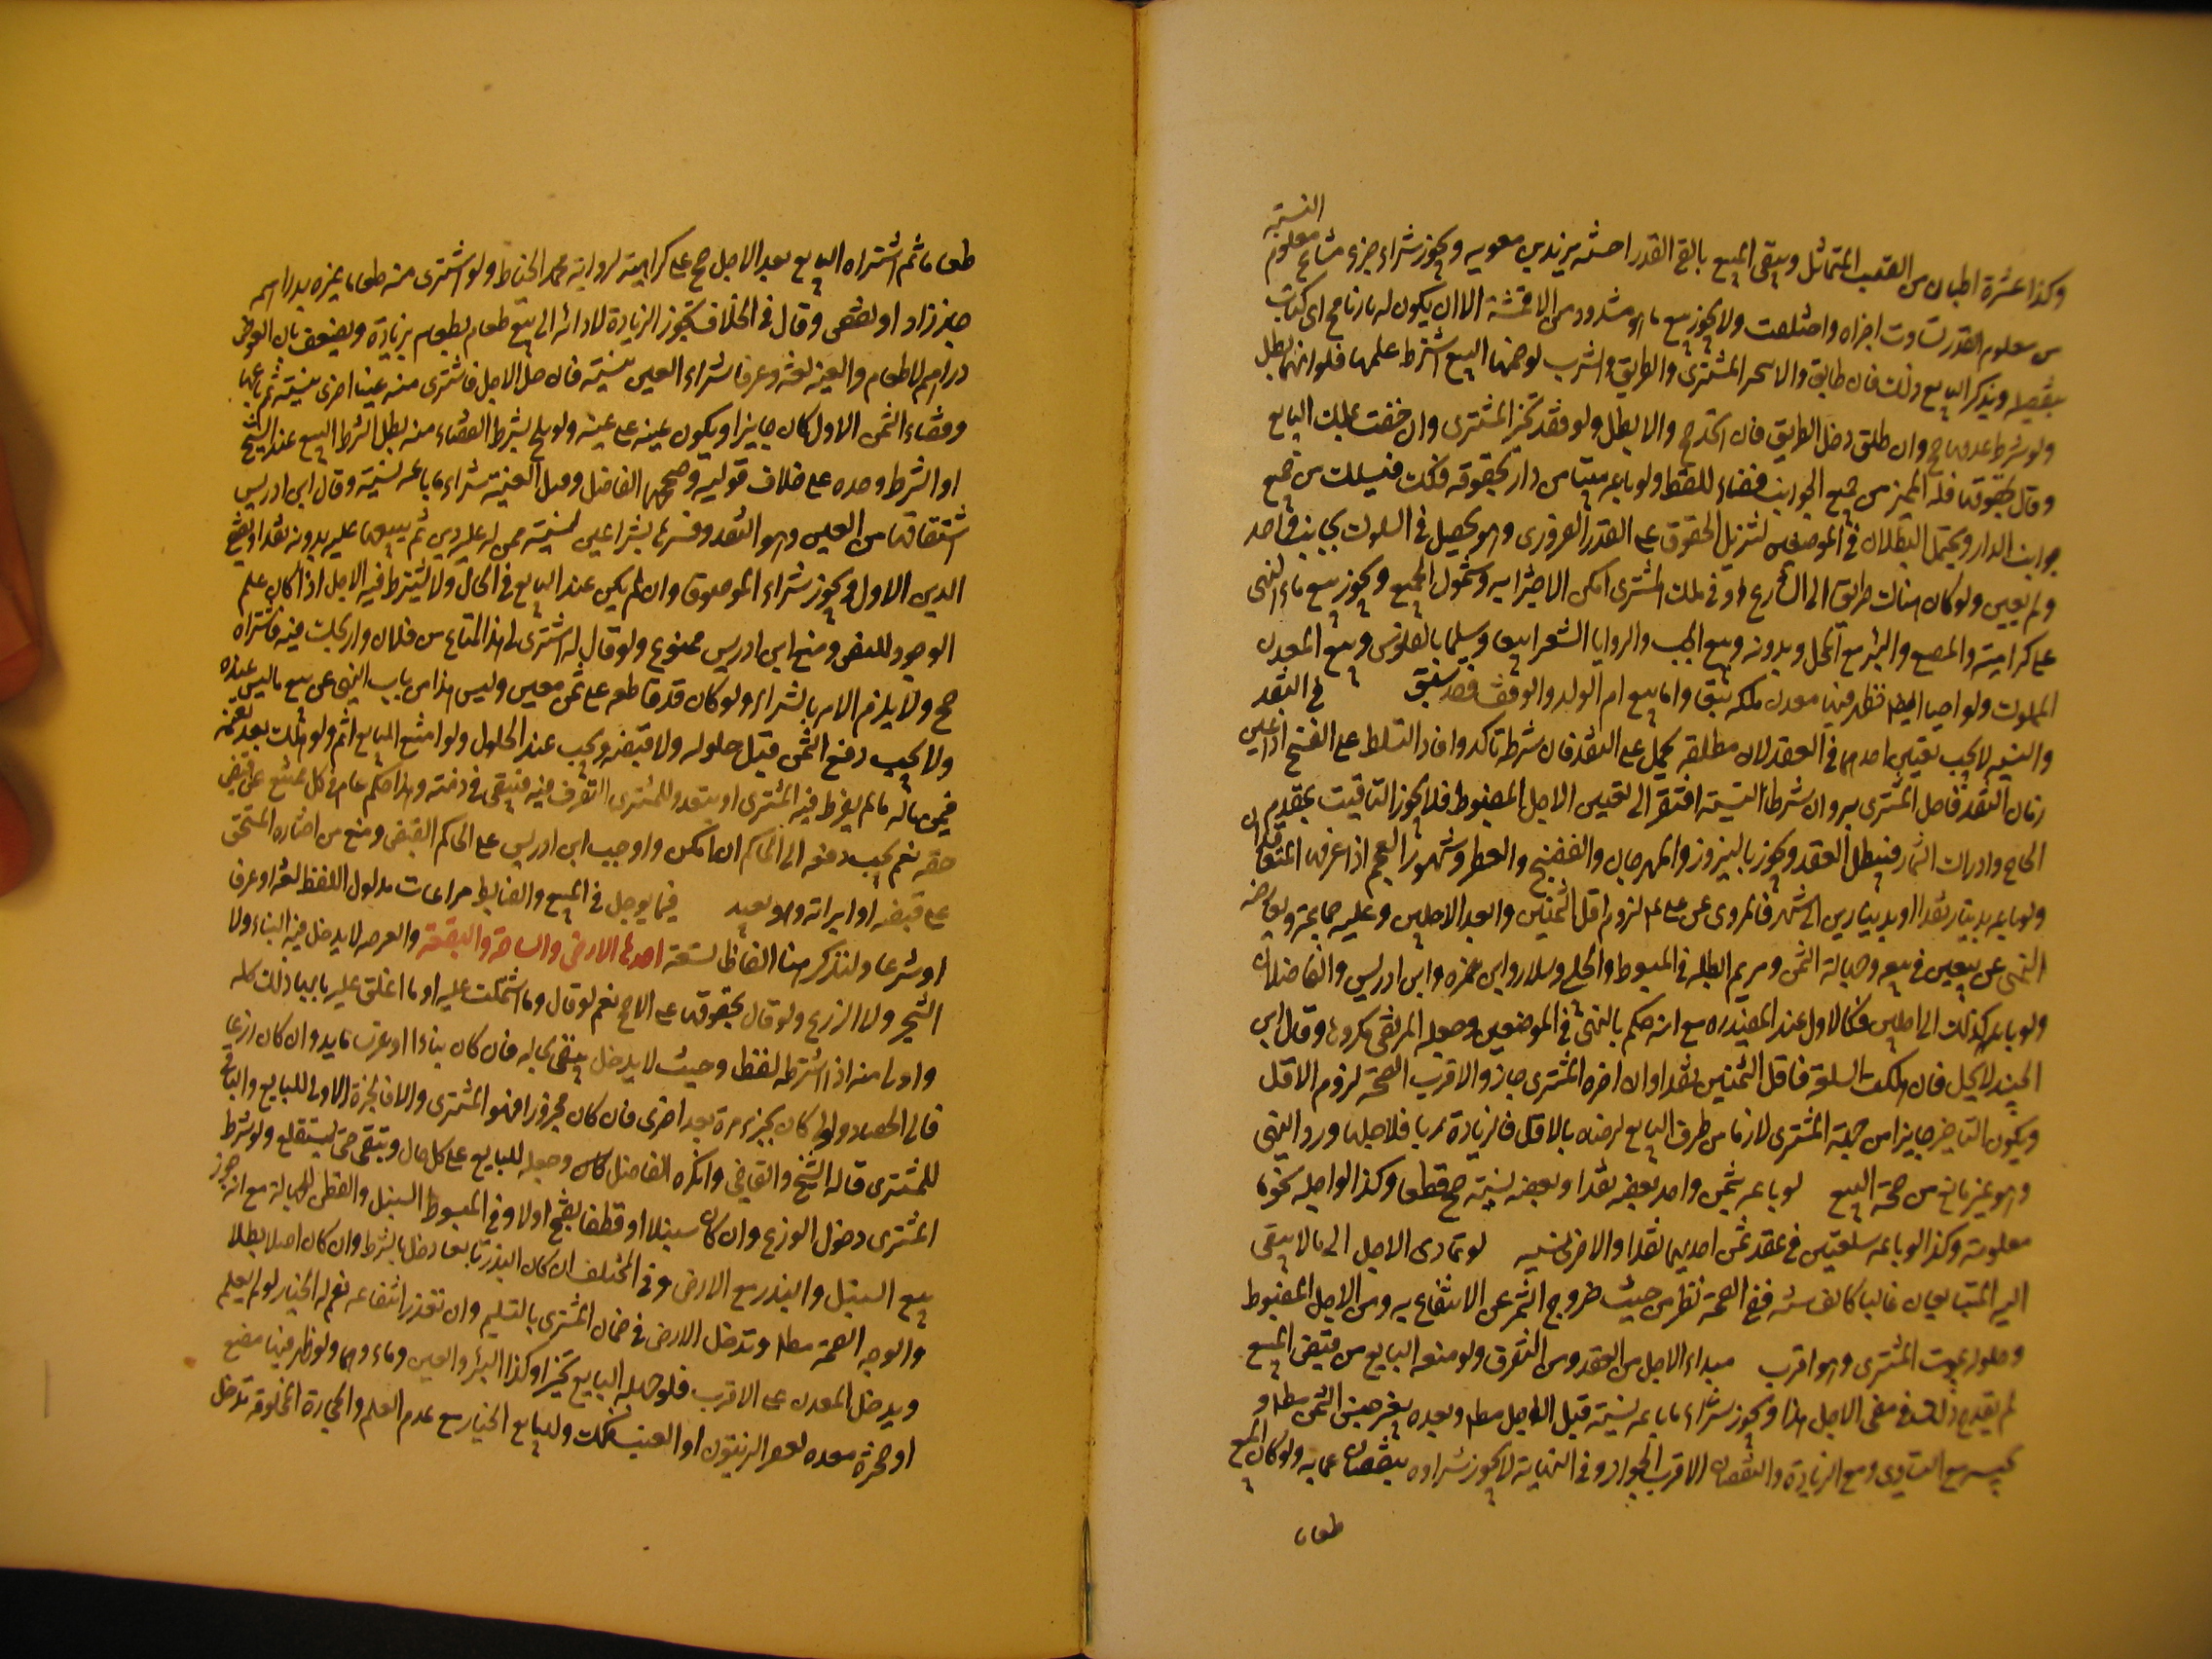 وكذا عشرة اطنان من القصب المتماثل ويبقى المبيع بالقدر ويجوز شراء جزء مشاع معلوم النسبة
من معلوم القدر تساوت اجزاه واختلفت ولا يجوز بيع ما هو مشدود من الاقمشة الا ان يكون له بارنامج اى كتاب
بتفصيله ويذكر البايع ذلك فان طابق والا تخير المشترى والطريق والشرب لو ضمنها البيع اشترط علمها فلو ابهمها بطل
ولو شرط عدمها صح وان طلق دخل الطريق فان اتحد صح والا بطل ولو فقد تخير المشترى وان خفت بملك البايع
وقال بحقوقها فله الممر من جميع الجوانب قضاء للفظ ولو باعه بيتا من دار بحقوقه فكت فيسلك من جميع
جوانب الدار ويحتمل البطلان في الموضعين لتنزيل الحقوق على القدر الضرورى وهو يحصل في السلوك بجانب واحد
ولم يعين ولو كان هناك طريق الى الشارع او في ملك المشترى امكن الاجتزا به وشمول الجميع ويجوز بيع ماء النهر
على كراهية والمصنع والبئر مع المحل وبدونه وبيع الجب والروايا الشعر ايضا وسلما بالطوس وبيع المعدن
المملوك ولو احيا ارضا فظهر فيها معدن ملكه تبعا واما بيع ام الولد والوقف فقد سبق في النقد
والنسيه لا يجب تعيين احدهما في العقد لان مطلقه يحمل على النقد فان شرطه تاكد وافاد التسلط على الفسخ اذا عين
زمان النقد فاخل المشترى به وان شرطا النسية افتقر الى تعيين الاجل المضبوط فلا يجوز التاقيت بمقدم
الحاج وادراك الثمار فيبطل العقد ويجوز بالنيروز والمهرجان والفصح والفطر وشهور العجم اذا عرفها المتعاقدان
ولو باعه بدينار نقدا او بدينارين الى شهر فالمروى عن على عم لزوم اقل الثمنين وابعد الاجلين وعليه جماعة ويعارضه
النهى عن بيعين في بيعه وجهالة الثمن ومن ثم ابطله في المبسوط والحلبى وسلار وابن حمزه وابن ادريس والفاضلان
ولو باعه كذلك الى اجلين فكالاول عند المفيد ره مع انه حكم بالنهى في الموضعين وجعله المرتضى مكروها وقال ابن
الجنيد لا يحل فان هلكت السلعة فاقل الثمنين نقدا وان اخره المشترى جاز والاقرب الصحة لزوم الاقل
ويكون التاخير جايزا من جهة المشترى لازما من طرف البايع لرضاه بالاقل فالزيادة ربا فلاجلها ورد النهى
وهو غير مانع من صحة البيع لو باعه بثمن واحد بعضه نقدا وبعضه نسية صح قطعا وكذا لو اجله نجوما
معلومة وكذا لو باعه سلعتين في عقد ثمن احديهما نقدا والاخرى نسيه لو تمادى الاجل الى ما لا يبقى
اليه المتبايعان غالبا كالف سنه ففي الصحة نظر من حيث خروج الثمن عن الانتفاع به ومن الاجل المضبوط
وحلوله بموت المشترى وهو اقرب مبداء الاجل من العقد ومن التفرق ولو منعه البايع من قبض المبيع
لم يقدح ذلك في مضى الاجل هذا ويجوز شراء ما باعه نسية قبل الاجل مطلقا وبعده بغير جنس الثمن مطلقا و
بجنسه مع التساوى ومع الزيادة والنقصان الاقرب الجواز وفي النهاية لا يجوز شراوه بنقصان عما به ولو كان المبيع
طعاما
طعاما ثم اشتراه البايع بعد الاجل صح على كراهية لرواية محمد الحناط ولو اشترى منه طعاما غيره بدراهم
جاز زاد او نقص وقال في الخلاف تجوز الزيادة لادائه الى بيع طعام بطعام بزيادة ويضعف بان العوض
دراهم لا طعام والعينه لغة وعرفا شراء العين نسية فان حل الاجل فاشترى منه عينا اخرى نسية ثم باعها
وقضاء الثمن الاول كان جايزا ويكون عينه على عينه ولو شرط القضاء منه بطل الشرط البيع عند الشيخ
او الشرط وحده على خلاف قوليه وصححهما الفاضل وقيل العينة شراء ما باعه نسية وقال ابن ادريس
اشتقاقها من العين وهو النقد وفسرها بشرا عين نسية ممن له عليه دين ثم يبيعها عليه بدونه نقدا ويقضى
الدين الاول ويجوز شراء الموصوف وان لم يكن عند البايع في الحال ولا يشترط فيه الاجل اذا كان علم
الوجود للنص ومنع ابن ادريس ممنوع ولو قال له اشترى لى هذا المتاع من فلان واربحك فيه فاشتراه
صح ولا يلزم الامر بالشراء ولو كان قد قاطعه على ثمن معين وليس هذا من باب النهى عن بيع ما ليس عنده
ولا يجب دفع الثمن قبل حلوله ولا قبضه ويجب عند الحلول ولو امتنع البايع اثم ولو هلك بعد تعينه
فمن ماله ما لم يفرط فيه المشترى او يتعد وللمشترى التصرف فيه فيبقى في ذمته وهذا حكم عام في كل ممتنع عن قبض
حقه نعم يجب دفعه الى الحاكم ان امكن واوجب ابن ادريس على الحاكم القبض ومنع من اجباره المستحق
على قبضه او ابرائه وهو بعيد فيما يدخل في المبيع والضابط مراعات مدلول اللفظ لغة او عرفا
او شرعا ولنذكر هنا الفاظا تسعة احدها الارض والساحة والبقعة والعرصه لا يدخل فيه البناء ولا
الشجر ولا الزرع ولو قال بحقوقها على الاصح نعم لو قال وما اشتملت عليه او ما اغلق عليه بابها ذلك كله
واولى منه اذا اشترطه لفظا وحيث لا يدخل يبقى بحاله فان كان بناءا او غرسا تابد وان كان زرعا
فالى الحصاد ولو كان يجز مرة بعد اخرى فان كان مجزوزا فهو المشترى والا فالجزة الاولى للبايع والباقى
للمشترى قاله الشيخ والقاضى وانكره الفاضل وجعله للبايع على كل حال ويبقى حتى يستقلع ولو شرط
المشترى دخول الزرع وان كان سنبلا او قطنا تفتح اولا وفي المبسوط السنبل والقطن للجهالة مع انه جوز
بيع السنبل والبذر مع الارض وفي المختلف ان كان البذر تابعا دخل بالشرط وان كان اصلا بطلا
والوجه الصحة مطلقا وتدخل الارض في ضمان المشترى بالتسليم وان تعذر انتفاعه نعم له الخيار لو لم يعلم
ويدخل المعدن على الاقرب فلو جهله البايع تخير وكذا البئر والعين وماءوهما ولو ظهر فيها مصنع
او صخرة معده لعصر الزيتون او العنب فكت وللبايع الخيار مع عدم العلم والحجارة المخلوقه تدخل